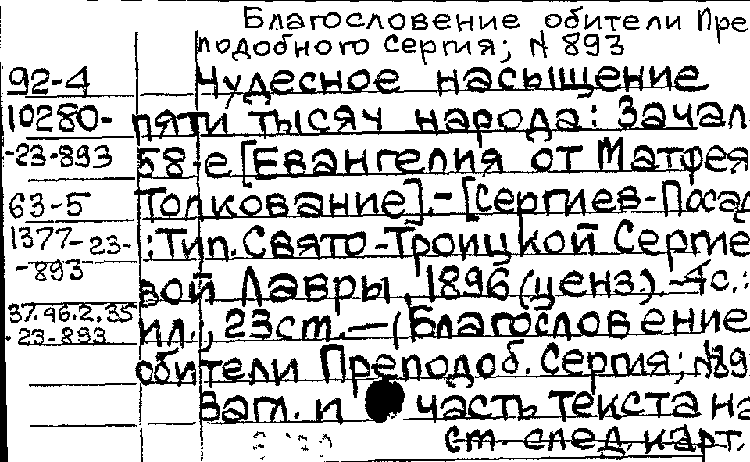 Благословение обители Пре
подобного Сергия; N 893
92-4 Чудесное насыщение
10280- пяти тысяч народа: Зачал
-23-893 58-е [Евангелия от Матфея
63-5 Толкование].-[Сергиев-Посад
1377-23- :Тип. Свято-Троицкой Сергие
-893 вой Лавры, 1896 (ценз).-4с.:
37.96.2.35 ил.; 23см.-(Благословение
-23-893 обители Преподоб. Сергия; №89
Загл. и часть текста на
см. след. карт.